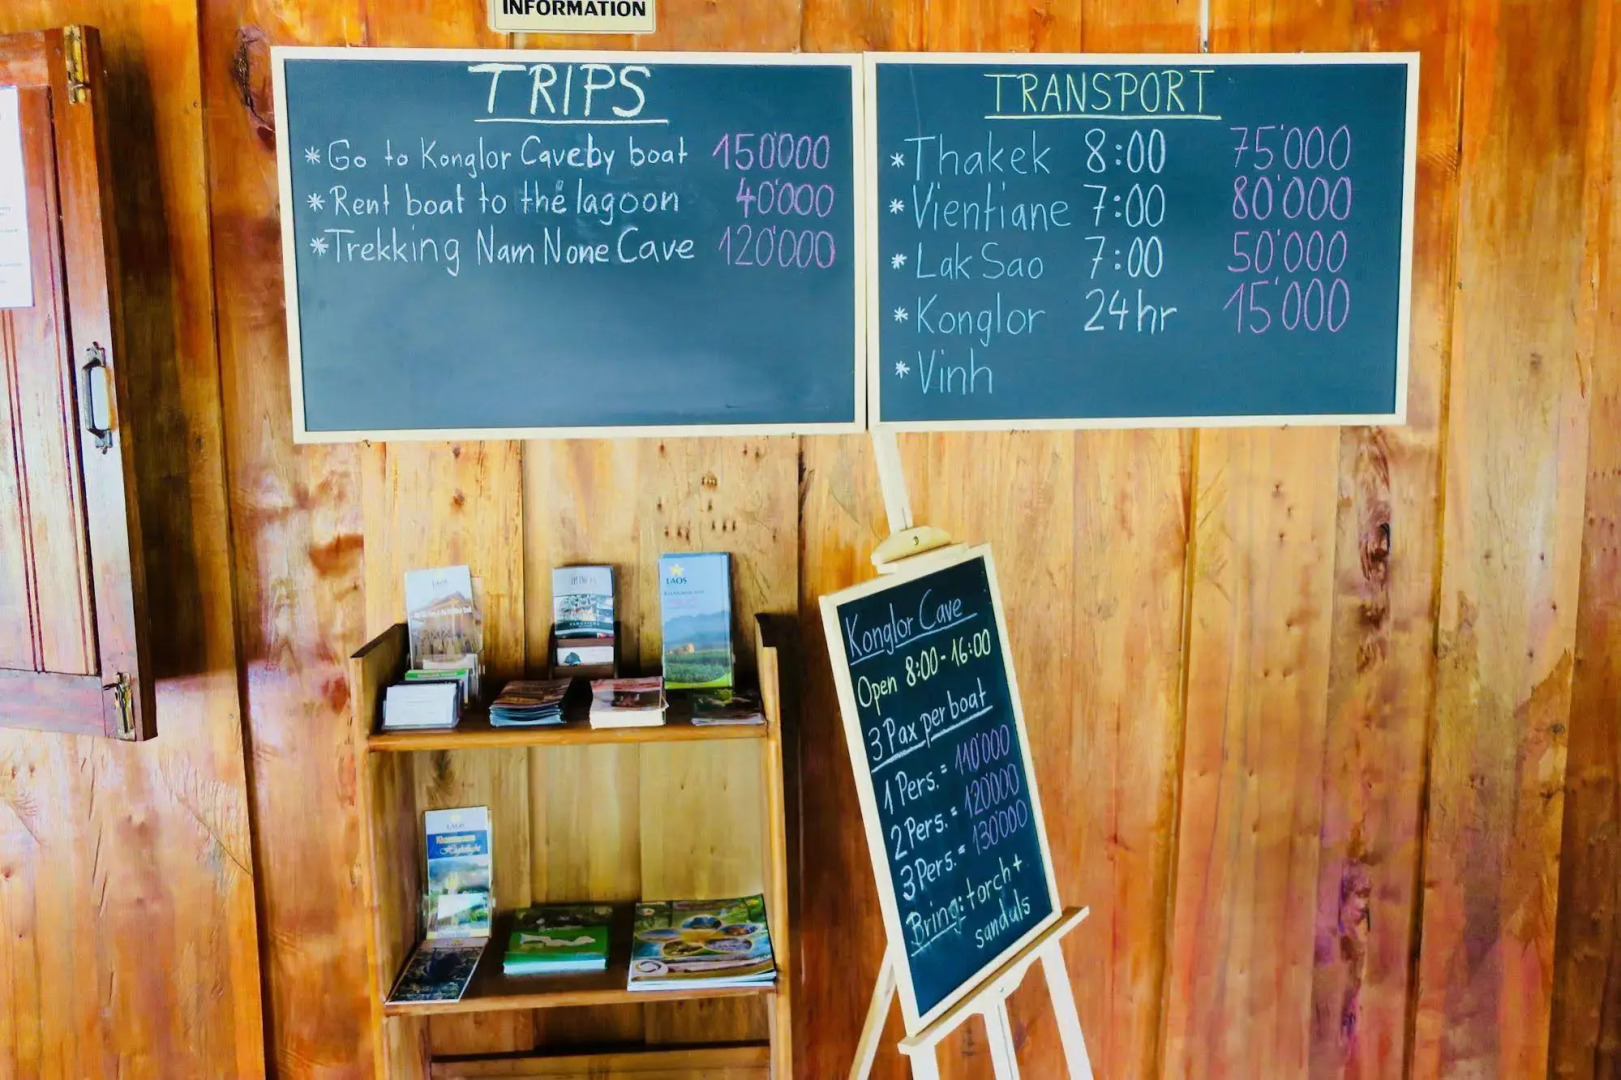 INFORMATION
TRIPS
* Go to Konglor Cave by boat 150'000
* Rent boat to the lagoon 40'000
* Trekking Nam None Cave 120'000
TRANSPORT
* Thakek 8:00 75'000
* Vientiane 7:00 80'000
* Lak Sao 7:00 50'000
* Konglor 24hr 15'000
* Vinh
Konglor Cave
Open 8:00-16:00
3 Pax per boat
1 Pers. = 110'000
2 Pers. = 120'000
3 Pers. = 130'000
Bring: torch +
sanduls
LAOS
LAOS
LAOS